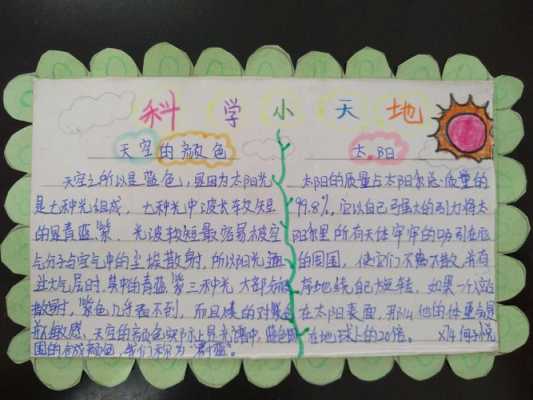 科学小天地
天空的颜色
天空之所以是蓝色,是因为太阳光
是七种光组成,七种光中波长较短
的是青蓝紫,光波较短最容易被空
气分子与空气中的尘埃散射,所以阳光通
过大气层时,其中的青蓝紫三种光大部分被
散射,紫色几乎看不到,而且 的 对紫色
敏感,天空的颜色实际上是光谱中蓝色
的合成颜色,我们称为"蔚蓝"。
太阳
太阳的质量占太阳系总质量的
99.8%,它以自己强大的引力将太
阳系里所有天体牢牢的吸引在它
的周围,使它们不离不散,井有
序地绕自己旋转,如果一个人站
在太阳表面,那么他的体重会是
在地球上的20倍。